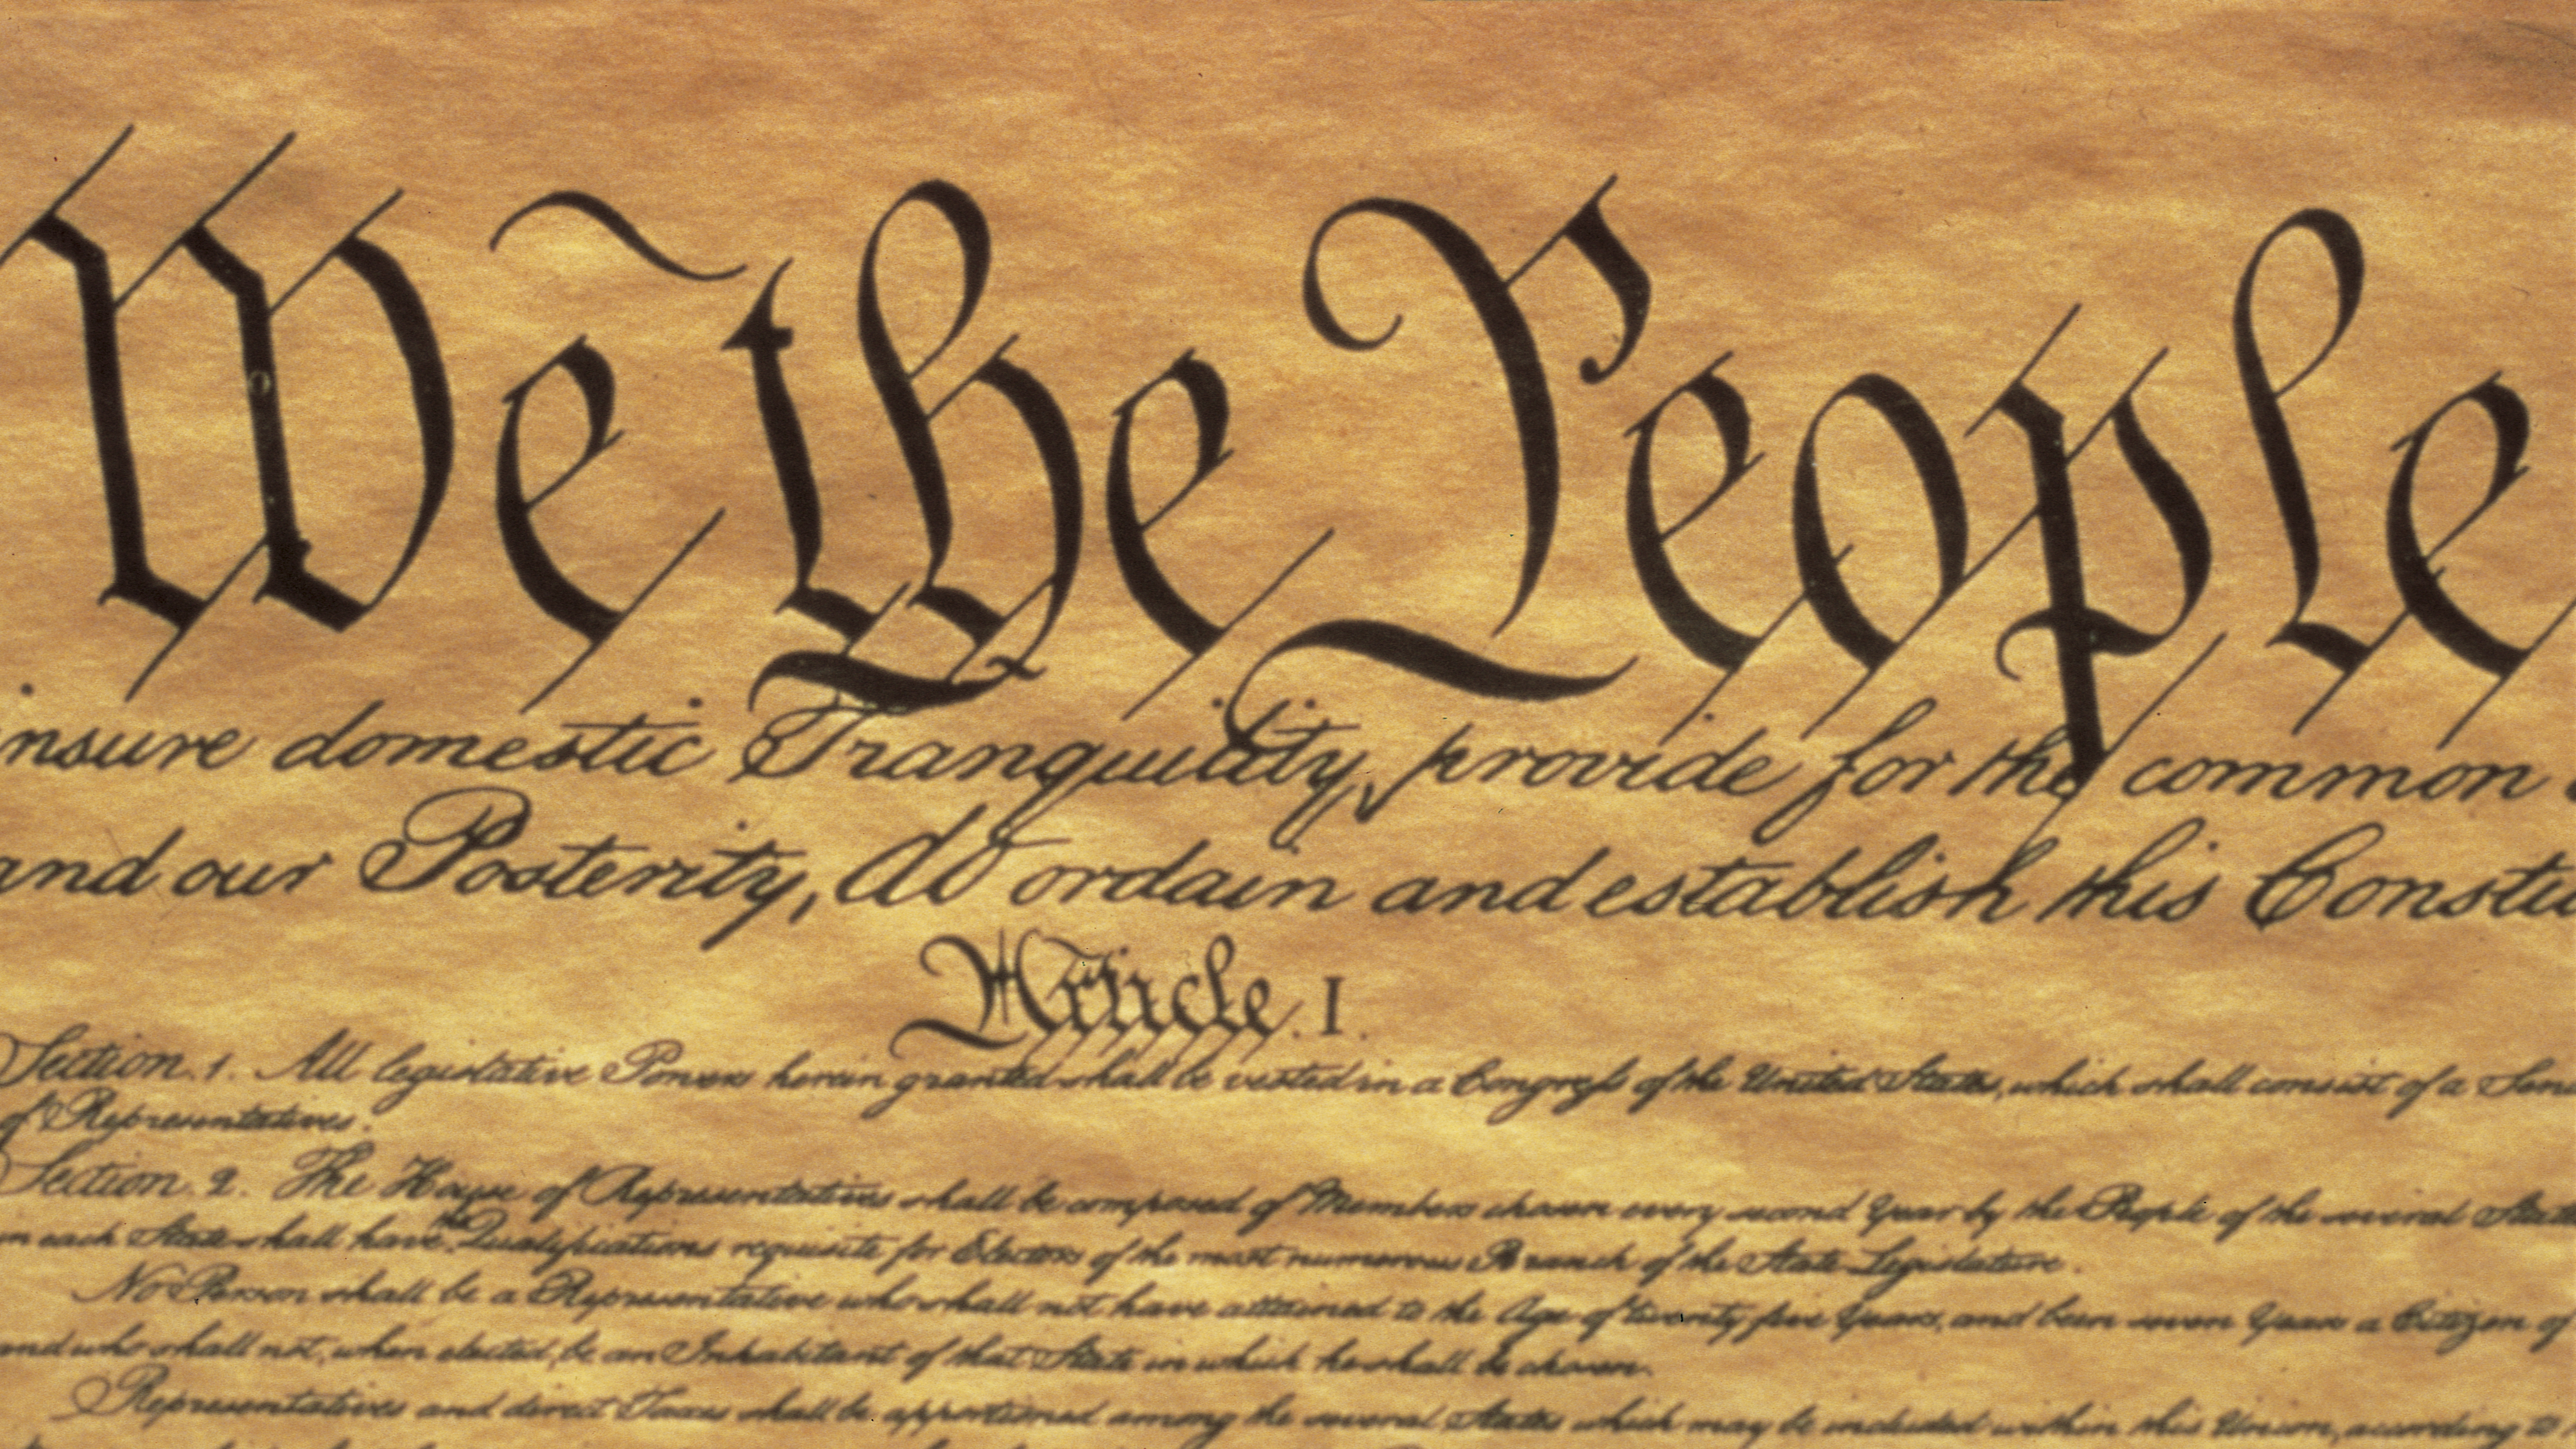 We the People
nsure domestic Tranquility, provide for the common
and our Posterity, do ordain and establish this Constitu
Article. I.
Section. 1. All legislative Powers herein granted shall be vested in a Congress of the United States, which shall consist of a Sen
of Representatives.
Section. 2. The House of Representatives shall be composed of Members chosen every second Year by the People of the several States
in each State shall have the Qualifications requisite for Electors of the most numerous Branch of the State Legislature.
No Person shall be a Representative who shall not have attained to the Age of twenty five Years, and been seven Years a Citizen of
and who shall not, when elected, be an Inhabitant of that State in which he shall be chosen.
Representatives and direct Taxes shall be apportioned among the several States which may be included within this Union, according to